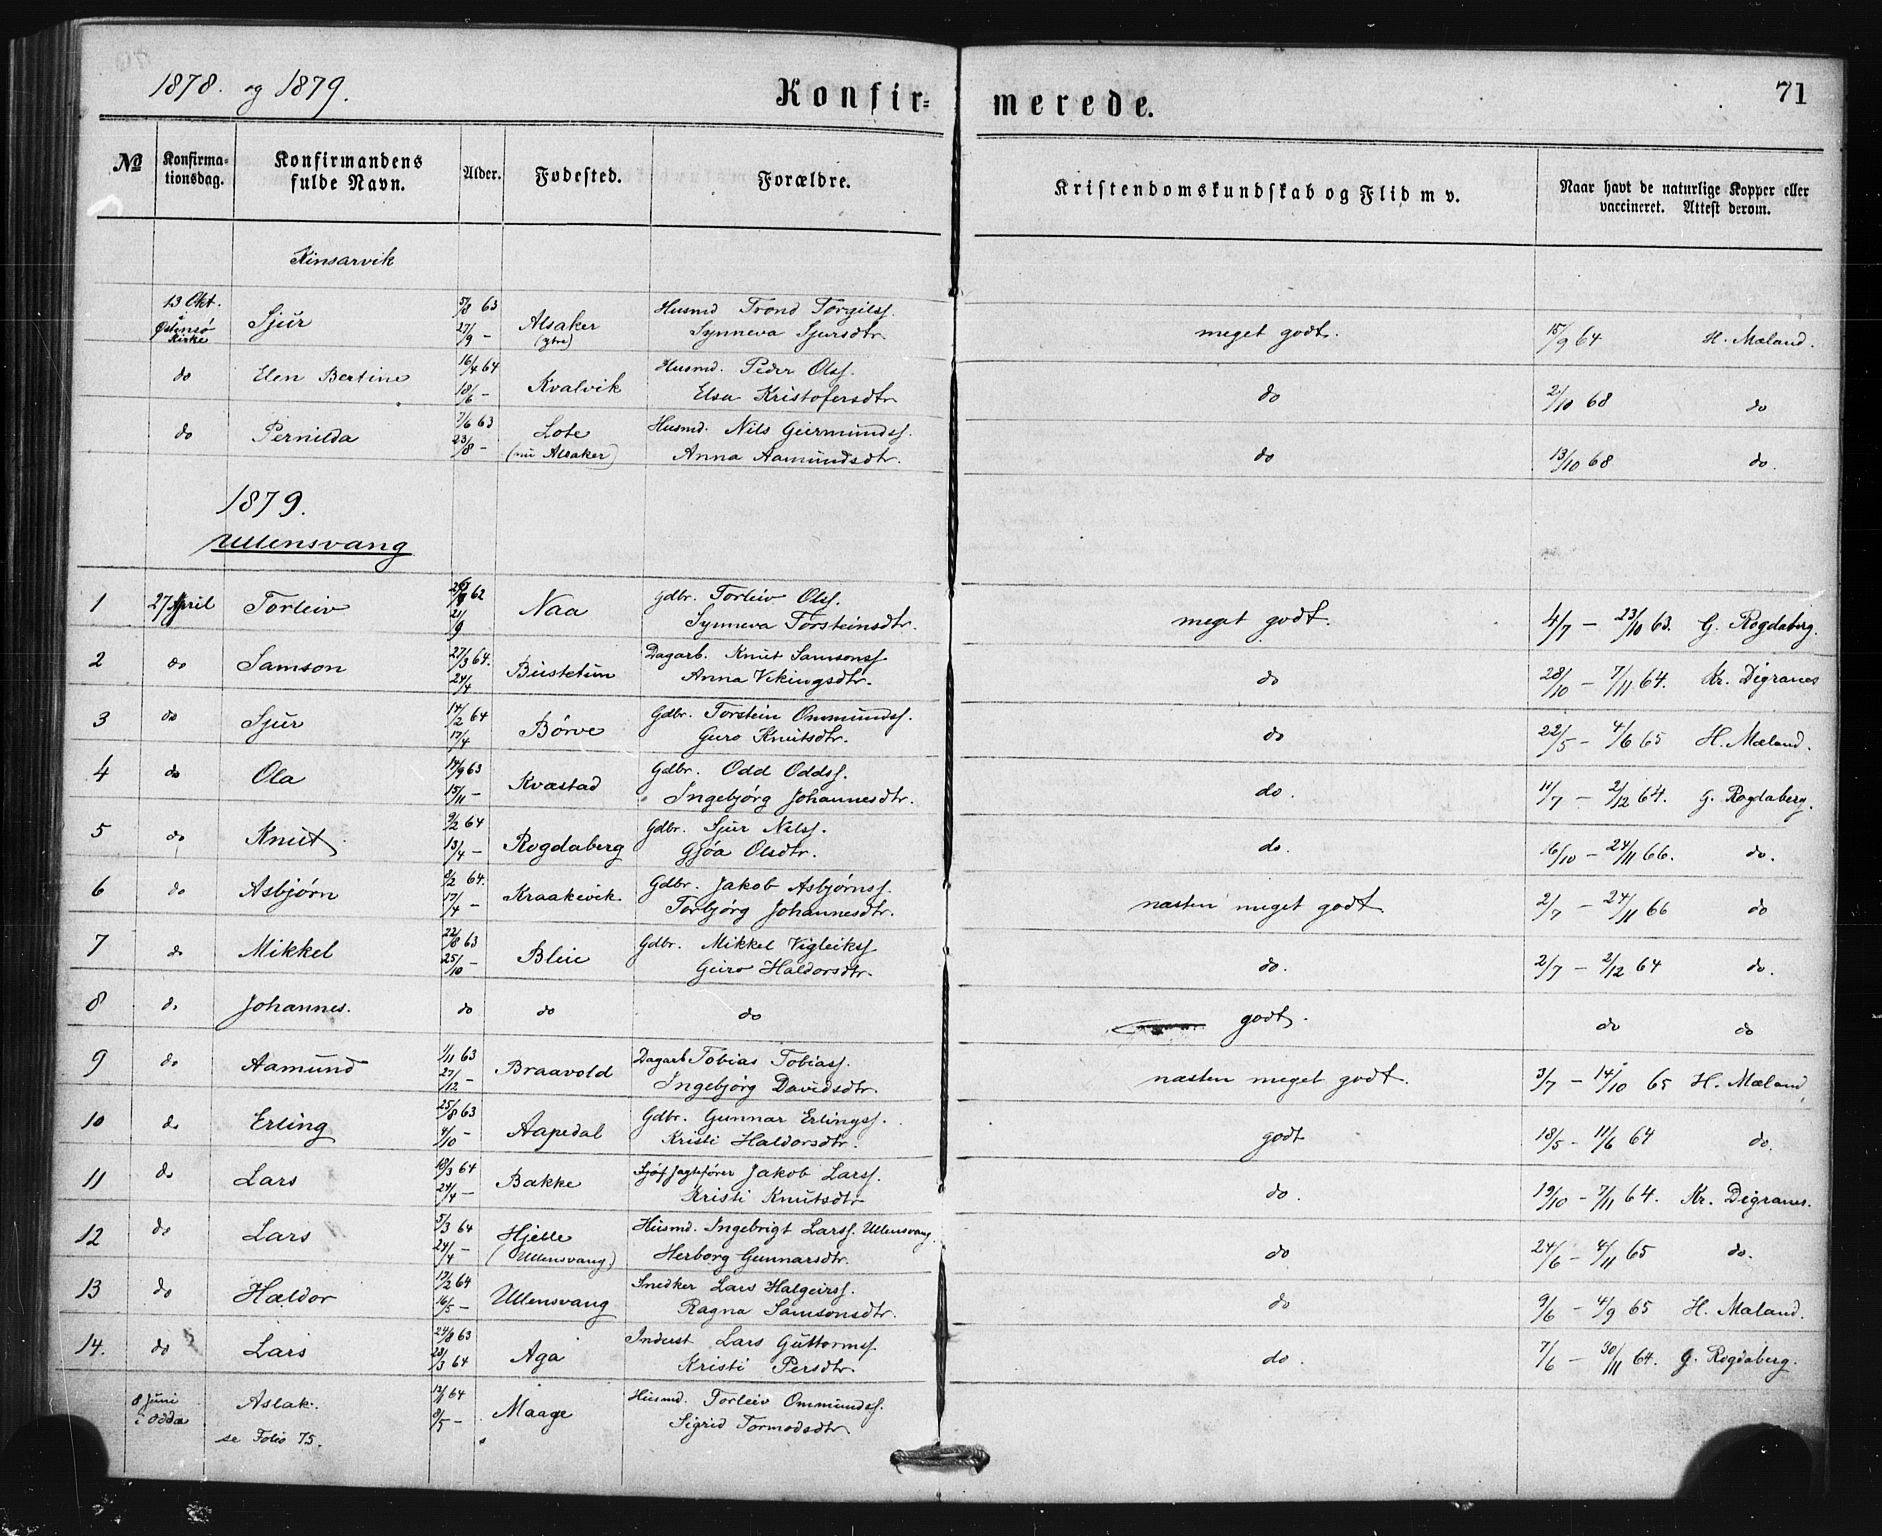 1878. og 1879.
Konfir=merede.
71
№
Konfirma=tionsdag.
Konfirmandens fulde Navn.
Alder.
Fødested.
Forældre.
Kristendomskundskab og Flid m v.
Naar havt de naturlige Kopper eller vaccineret. Attest derom.
Kinsarvik
13 Okt. i Østensø Kirke Sjur 5/8 63 27/9 – Alsaker (ytre) Husmd Trond Torgilss. Synneva Sjursdtr. meget godt. 15/9 64 H. Mæland.
do Elen Bertine 16/4 64 18/6 – Kvalvik Husmd. Peder Olss. Elsa Kristofersdtr do 2/10 68 do
do Pernilda 7/6 63 23/8 – Lote (nu Alsaker) Husmd. Nils Geirmundss. Anna Aamundsdtr. do 13/10 68 do.
1879.
Ullensvang
1 27 April Torleiv 62 21/9 Naa Gdbr. Torleiv Olss. Synneva Torsteinsdtr. meget godt. 4/7 – 23/10 63. G. Rogdaberg.
2 do Samson 27/3 64. 24/4 Bustetun Dagarb. Knut Samsonss. Anna Vikingsdtr. do 28/10 – 7/11 64. Kr. Digranes
3 do Sjur 14/2 64 17/4 Børve Gdbr. Torstein Ommundss. Guro Knutsdtr. do 22/5 – 4/6 65 H. Mæland.
4 do Ola 14/9 63 15/11 – Kvæstad Gdbr. Odd Oddss. Ingebjørg Johannesdtr. do. 11/7 – 2/12 64. G. Rogdaberg.
5 do Knut 9/2 64 13/4 – Rogdaberg Gdbr. Sjur Nilss. Gjøa Olsdtr. do. 16/10 – 24/11 66. do.
6 do Asbjørn 8/2 64. 17/4 – Kraakevik Gdbr. Jakob Asbjørnss. Torbjørg Johannesdtr. næsten meget godt 2/7 – 24/11 66 do
7 do Mikkel 22/8 63 25/10 – Bleie Gdbr. Mikkel Vigleikss. Guro Haldorsdtr. do. 2/7 – 2/12 64 do.
8 do Johannes. do do do godt. do do
9 do Aamund 1/11 63 27/12 – Braavold Dagarb Tobias Tobiass. Ingebjørg Davidsdtr. næsten meget godt. 3/7 – 14/10 65 H. Mæland,
10 do Erling 25/8 63 4/10 – Aapedal Gdbr. Gunnar Erlingss. Kristi Haldorsdtr. godt 18/5 – 11/6 64 do.
11 do Lars 18/3 64 24/4 – Bakke Jagtefører Jakob Larss. Kristi Knutsdtr do. 19/10 – 7/11 64. Kr. Digranes.
12 do Lars 5/3 64 24/4 – Hjelle (Ullensvang) Husmd. Ingebrigt Larss. Ullensvang. Herborg Gunnarsdtr. do 24/6 – 4/11 65 do.
13 do Haldor 17/2 64 16/5 – Ullensvang Snedker Lars Halgeirss. Ragna Samsonsdtr. do 9/6 – 4/9 65 H. Mæland.
14. do Lars 24/8 63 28/3 64 Aga Inderst Lars Guttormss. Kristi Persdtr. do. 7/6 – 30/11 64. G. Rogdaberg.
8 Juni i Odda Aslak. 64 8/5 – Maage Husmd. Torleiv Ommundss. Sigrid Tormodsdtr
se Folio 75.